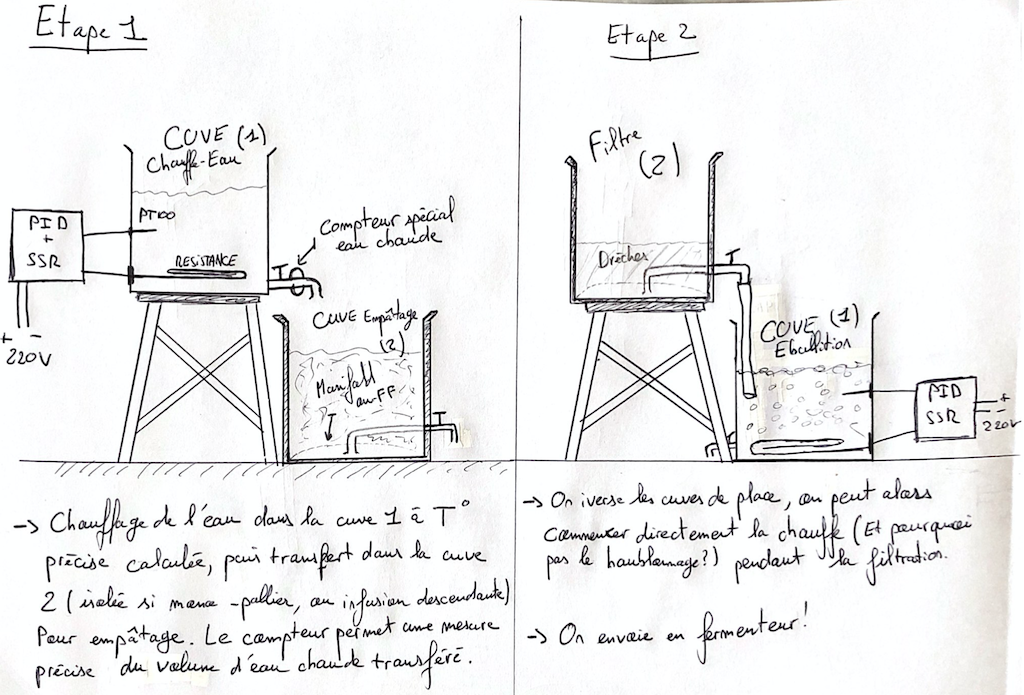 Etape 1
CUVE (1)
Chauffe-Eau
PT100
PID
+
SSR
RESISTANCE
+ -
220V
Compteur spécial
eau chaude
CUVE Empâtage
(2)
Manifold
ou FF
-> Chauffage de l'eau dans la cuve 1 à T°
précise calculée, puis transfert dans la cuve
2 (isolée si mono-pallier, ou infusion descendante)
Pour empâtage. Le compteur permet une mesure
précise du volume d'eau chaude transféré.
Etape 2
Filtre
(2)
Drêches
CUVE (1)
Ebullition
PID
SSR
+
-
220V
-> On iverse les cuves de place, on peut alors
commencer directement la chauffe (Et pourquoi
pas le houblonnage?) pendant la filtration.
-> On envoie en fermenteur!